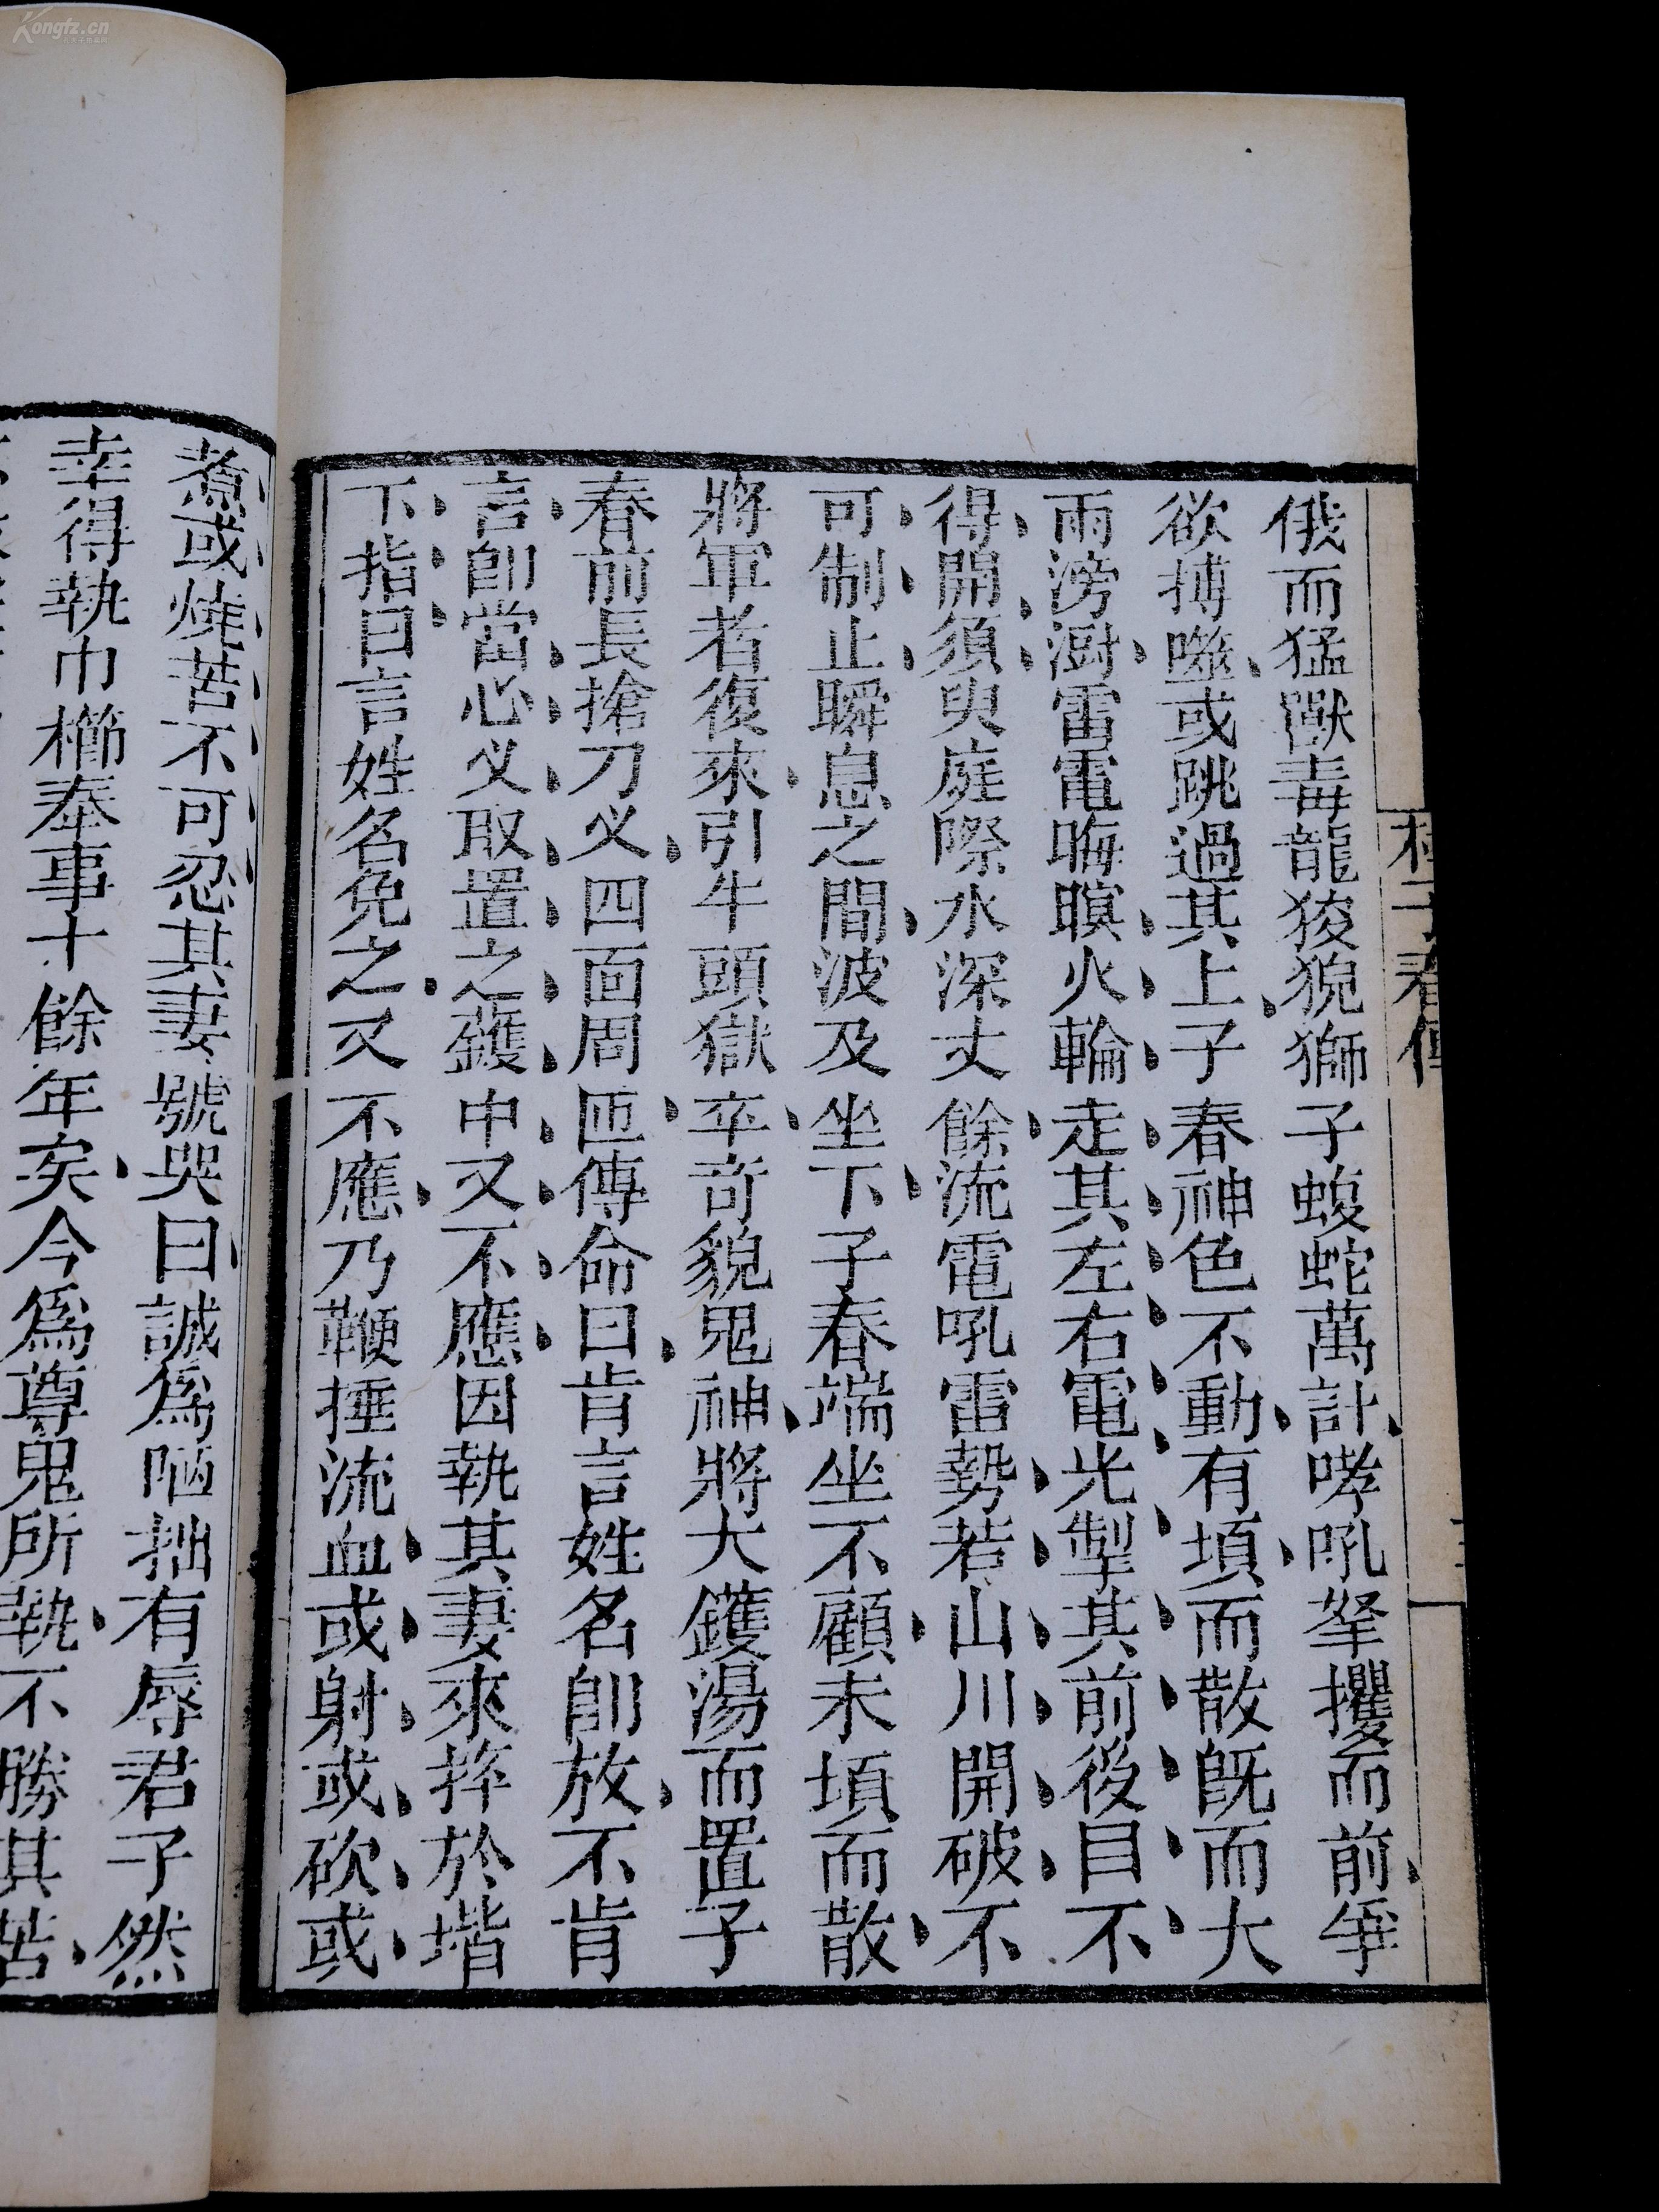 俄而猛獸毒龍狻猊獅子蝮蛇萬計哮吼拏攫而前爭
欲搏噬或跳過其上子春神色不動有頃而散旣而大
雨滂澍雷電晦暝火輪走其左右電光掣其前後目不
得開須臾庭際水深丈餘流電吼雷勢若山川開破不
可制止瞬息之間波及坐下子春端坐不顧未頃而散
將軍者復來引牛頭獄卒奇貌鬼神將大鑊湯而置子
春前長搶刀义四面周匝傳命曰肯言姓名卽放不肯
言卽當心义取置之鑊中又不應因執其妻來捽於堦
下指曰言姓名免之又不應乃鞭捶流血或射或砍或
煮或燒苦不可忍其妻號哭曰誠爲陋拙有辱君子然
幸得執巾櫛奉事十餘年矣今爲尊鬼所執不勝其苦
Kongfz.cn